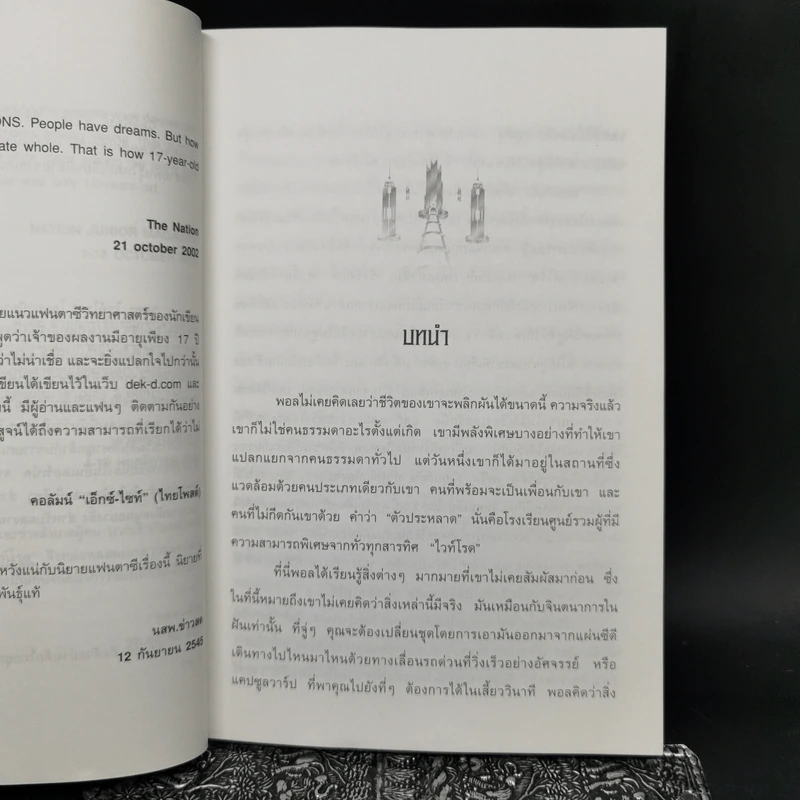 ONS. People have dreams. But how
ate whole. That is how 17-year-old
The Nation
21 october 2002
ยแนวแฟนตาซีวิทยาศาสตร์ของนักเขียน
พูดว่าเจ้าของผลงานมีอายุเพียง 17 ปี
ว่าไม่น่าเชื่อ และจะยิ่งแปลกใจไปกว่านั้น
เขียนได้เขียนไว้ในเว็บ dek-d.com และ
นี้ มีผู้อ่านและแฟนๆ ติดตามกันอย่าง
สูจน์ได้ถึงความสามารถที่เรียกได้ว่าไม่
คอลัมน์ “เอ็กซ์-ไซท์” (ไทยโพสต์)
หวังแน่กับนิยายแฟนตาซีเรื่องนี้ นิยายที่
พันธุ์แท้
นสพ.ข่าวสด
12 กันยายน 2545
บทนำ
พอลไม่เคยคิดเลยว่าชีวิตของเขาจะพลิกผันได้ขนาดนี้ ความจริงแล้ว
เขาก็ไม่ใช่คนธรรมดาอะไรตั้งแต่เกิด เขามีพลังพิเศษบางอย่างที่ทำให้เขา
แปลกแยกจากคนธรรมดาทั่วไป แต่วันหนึ่งเขาก็ได้มาอยู่ในสถานที่ซึ่ง
แวดล้อมด้วยคนประเภทเดียวกับเขา คนที่พร้อมจะเป็นเพื่อนกับเขา และ
คนที่ไม่กีดกันเขาด้วย คำว่า “ตัวประหลาด” นั่นคือโรงเรียนศูนย์รวมผู้ที่มี
ความสามารถพิเศษจากทั่วทุกสารทิศ “ไวท์โรด”
ที่นี่พอลได้เรียนรู้สิ่งต่างๆ มากมายที่เขาไม่เคยสัมผัสมาก่อน ซึ่ง
ในที่นี้หมายถึงเขาไม่เคยคิดว่าสิ่งเหล่านี้มีจริง มันเหมือนกับจินตนาการใน
ฝันเท่านั้น ที่จู่ๆ คุณจะต้องเปลี่ยนชุดโดยการเอามันออกมาจากแผ่นซีดี
เดินทางไปไหนมาไหนด้วยทางเลื่อนรถด่วนที่วิ่งเร็วอย่างอัศจรรย์ หรือ
แคปซูลวาร์ป ที่พาคุณไปยังที่ๆ ต้องการได้ในเสี้ยววินาที พอลคิดว่าสิ่ง